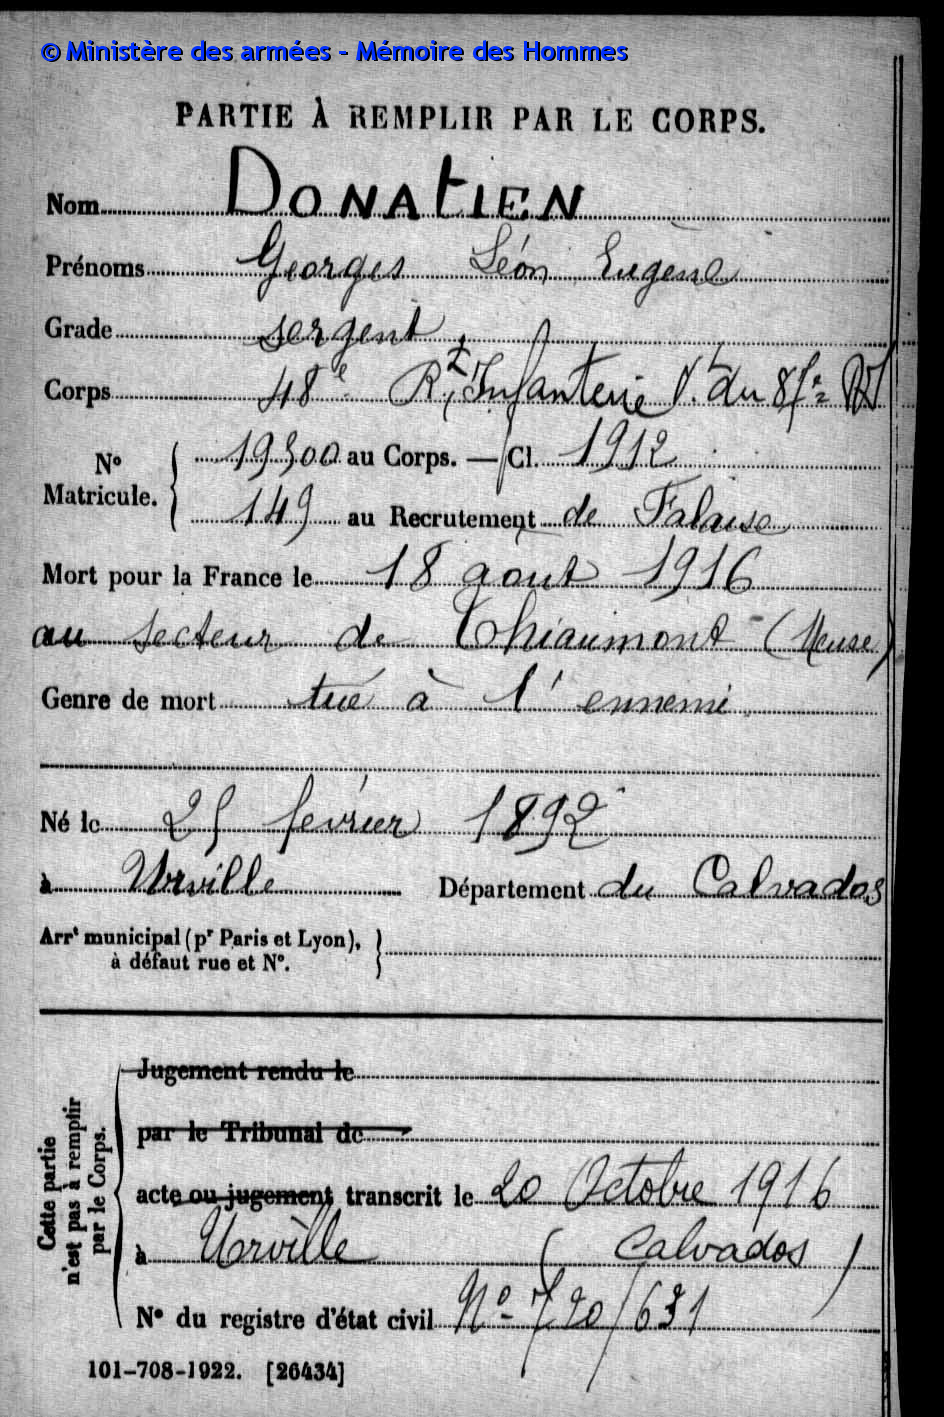 © Ministère des armées - Mémoire des Hommes
PARTIE À REMPLIR PAR LE CORPS.
Nom DONATIEN
Prénoms Georges Léon Eugène
Grade sergent
Corps 48e Rt Infanterie
No Matricule. { 19300 au Corps. — Cl. 1912
149 au Recrutement de Falaise
Mort pour la France le 18 août 1916
au secteur de Thiaumont (Meuse)
Genre de mort tué à l'ennemi
Né le 25 février 1892
à Urville Département du Calvados
Arrt municipal (pr Paris et Lyon), }
à défaut rue et No.
Cette partie n'est pas à remplir par le Corps.
Jugement rendu le
par le Tribunal de
acte ou jugement transcrit le 20 Octobre 1916
à Urville (Calvados)
No du registre d'état civil No 720/631
101-708-1922. [26434]